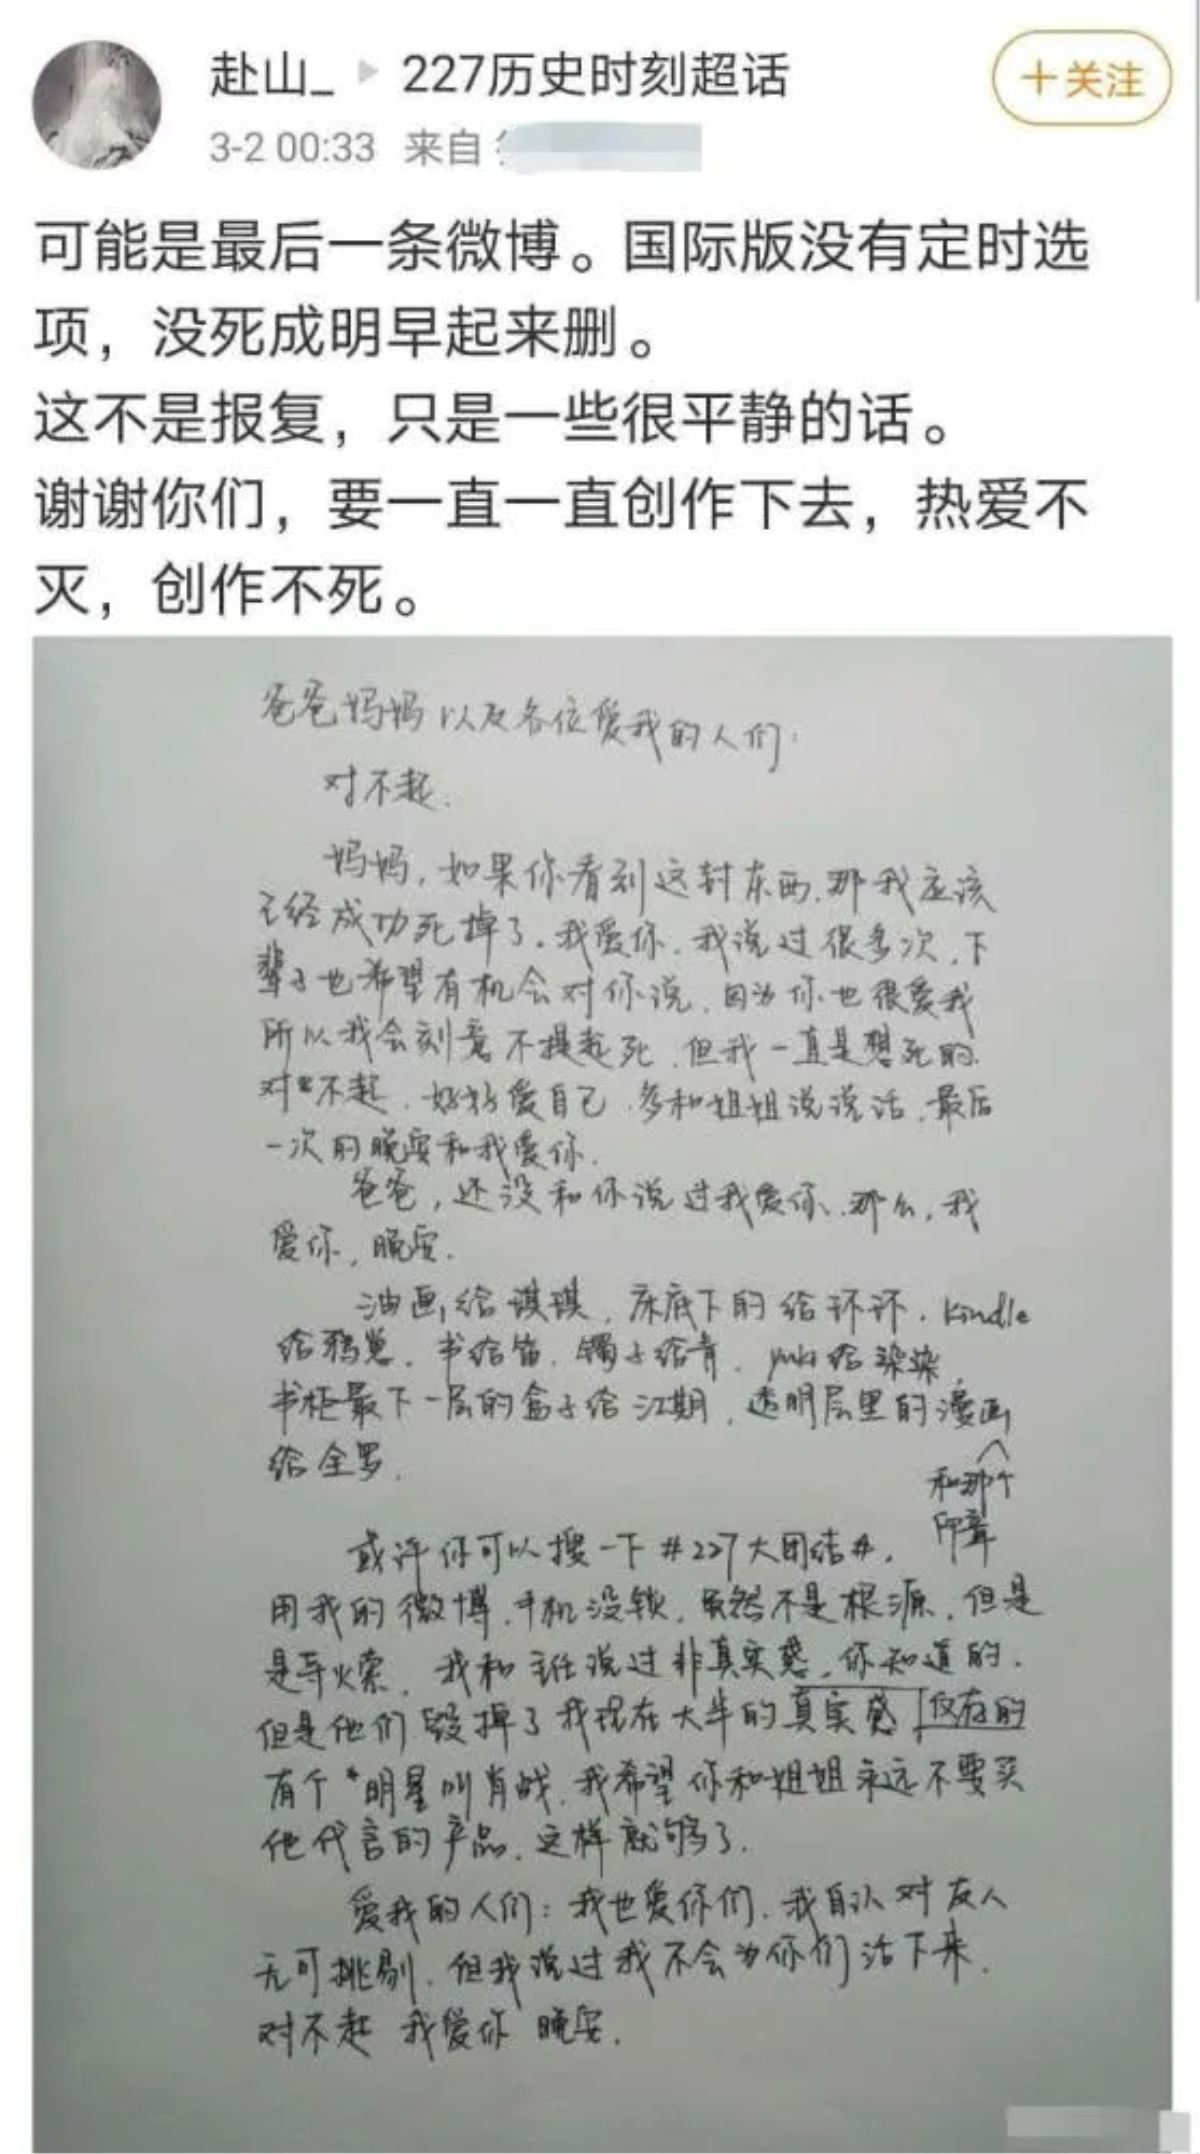 赴山_ ▶ 227历史时刻超话
+关注
3-2 00:33 来自
可能是最后一条微博。国际版没有定时选
项，没死成明早起来删。
这不是报复，只是一些很平静的话。
谢谢你们，要一直一直创作下去，热爱不
灭，创作不死。
爸爸妈妈以及各位爱我的人们：
对不起.
妈妈，如果你看到这封东西，那我应该
已经成功死掉了。我爱你，我说过很多次，下
辈子也希望有机会对你说，因为你也很爱我
所以我会刻意不提起死，但我一直是想死的.
对不起，好好爱自己，多和姐姐说说话，最后
一次的晚安和我爱你.
爸爸，还没和你说过我爱你、那么，我
爱你，晚安.
油画给琪琪，床底下的给环环，kindle
给鸦崽，书给笛，镯子给青，yuki给染染
书柜最下一层的盒子给江期，透明层里的漫画
和那个
印章
给全罗.
或许你可以搜一下#227大团结#，
用我的微博，手机没锁，虽然不是根源，但是
是导火索，我和主任说过非真实感，你知道的.
但是他们毁掉了我现在大半的真实感 仅存的
有个*明星叫肖战，我希望你和姐姐永远不要买
他代言的产品，这样就够了.
爱我的人们：我也爱你们，我自认对友人
无可挑剔，但我说过我不会为你们活下来.
对不起 我爱你 晚安.